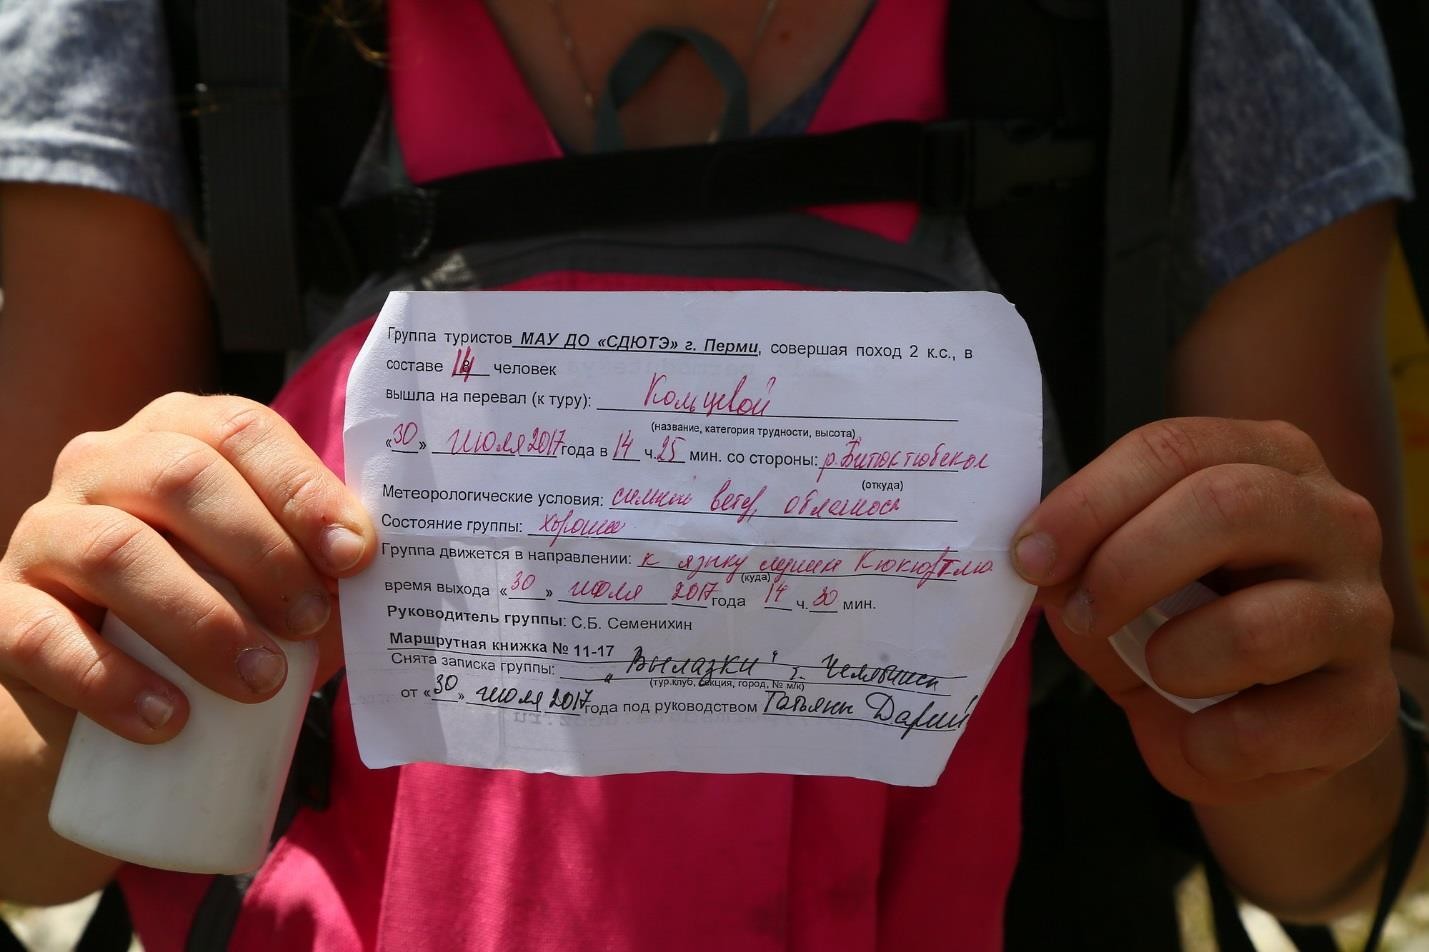 Группа туристов МАУ ДО «СДЮТЭ» г. Перми, совершая поход 2 к.с., в
составе 14 человек
вышла на перевал (к туру): Кольцевой
(название, категория трудности, высота)
«30» июля 2017 года в 14 ч. 25 мин. со стороны: р. Битюктюбекол
(откуда)
Метеорологические условия: сильный ветер, облачность
Состояние группы: хорошее
Группа движется в направлении: к языку ледника
(куда)
время выхода «30» июля 2017 года 14 ч. 30 мин.
Руководитель группы: С.Б. Семенихин
Маршрутная книжка № 11-17
Снята записка группы: "Вылазки" г. Челябинск
(тур.клуб, секция, город, № м/к)
от «30» июля 2017 года под руководством Татьяны